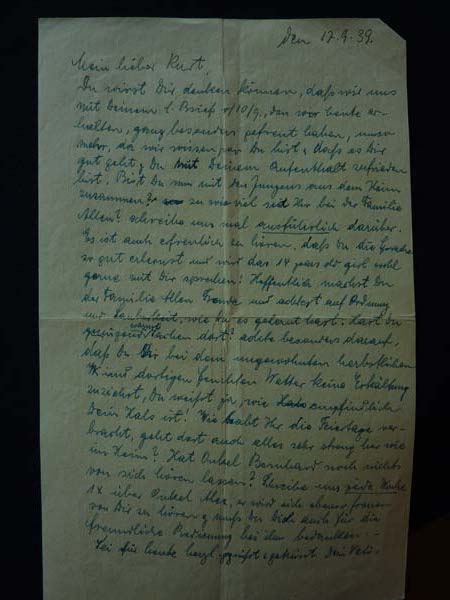 den 17.9.39.
Mein lieber Kurt,
Du wirst Dir denken können, daß wir uns
mit Deinem l. Brief v/10/9., den wir heute er-
halten, ganz besonders gefreut haben, umso
mehr, da wir wissen, wo Du bist & daß es Dir
gut geht, & Du mit Deinem Aufenthalt zufrieden
bist. Bist Du nun mit den Jungens aus dem Heim
zusammen? zu wie viel seid Ihr bei der Familie
Allen? schreibe uns mal ausführlich darüber.
Es ist auch erfreulich zu hören, daß Du die Sprache
so gut erlernst und wird das 14 years old girl wohl
gerne mit Dir sprechen! Hoffentlich machst Du
der Familie Allen Freude und achtest auf Ordnung
und Sauberkeit, wie Du es gelernt hast. Hast Du
genügend warme Sachen dort? achte besonders darauf,
daß Du Dir bei dem ungewohnten herbstlichen
und dortigen feuchten Wetter keine Erkältung
zuziehst, Du weißt ja, wie empfindlich
Dein Hals ist! Wie habt Ihr die Feiertage ver-
bracht, geht dort auch alles sehr streng her wie
im Heim? Hat Onkel Bernhard noch nichts
von sich hören lassen? Schreibe uns jede Woche
1x über Onkel Alex, er wird sich ebenso freuen
von Dir zu hören & mußt Du Dich auch für die
freundliche bei den bedanken.
Sei für heute herzl. gegrüßt & geküsst Dein Vati.